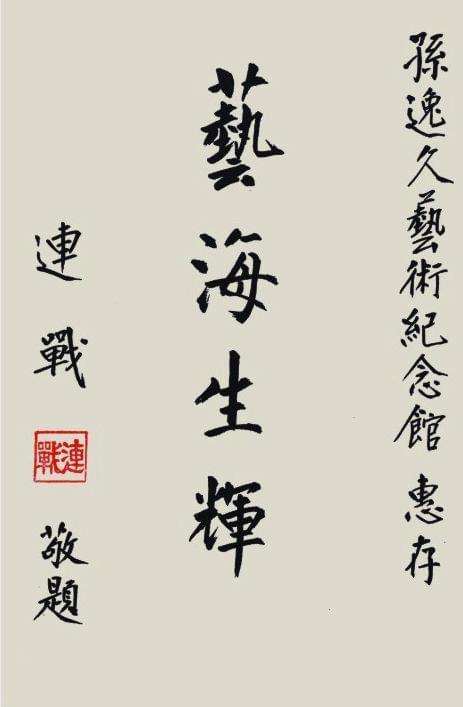 孫逸久藝術紀念館 惠存
藝海生輝
連戰
連戰
敬題